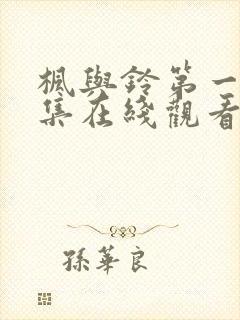 楓與鈴第一
集在綫觀看
孫華良